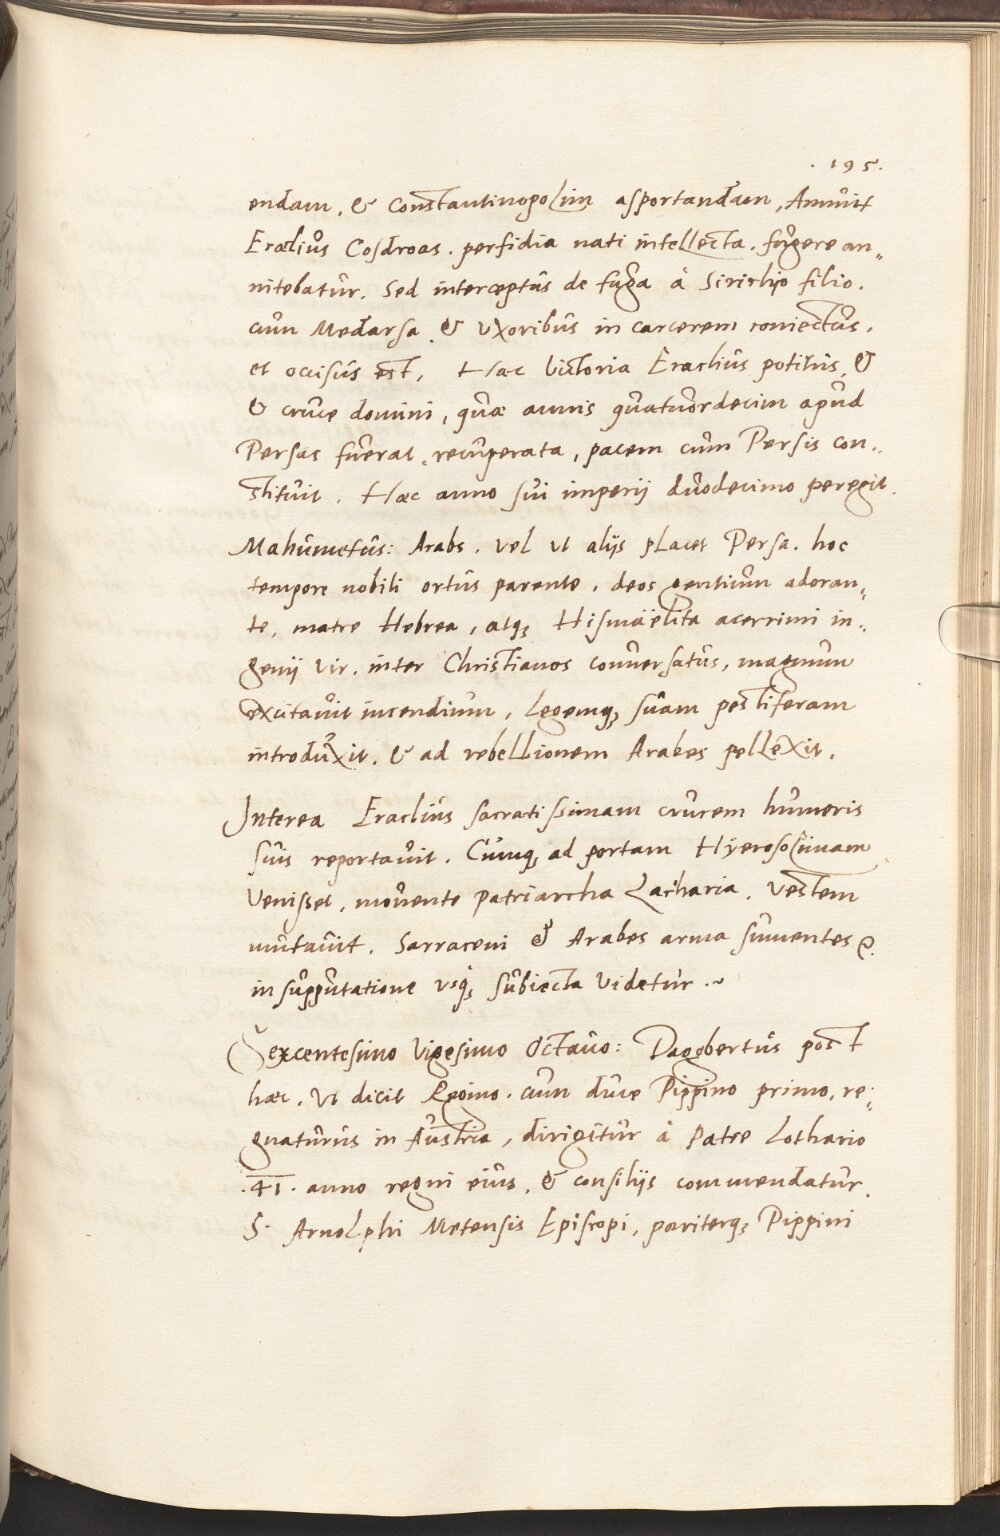 . 195.
endam, & Constantinopolim asportandam, Annuit
Eraclius Cosdroas. perfidia nati intellecta. fugere an„
nitebatur. Sed interceptus de fuga à Sirichio filio.
cum Medarsa & Vxoribus in carcerem coniectus.
et occisus est, Hac Victoria Eraclius potitus, &
& cruce domini, quæ annis quatuordecim apud
Persas fuerat recuperata, pacem cum Persis con„
stituit. Hæc anno sui imperij duodecimo peregit.
Mahumetus: Arabs. Vel Vt alijs placet Persa. hoc
tempore nobili ortus parente. deos gentium adoran„
te, matre Hebrea, atq; Hismäelita acerrimi in„
genij Vir. inter Christianos conuersatus, magnum
excitauit incendium, Legemq; suam pestiferam
introduxit, & ad rebellionem Arabes pellexit.
Interea Eraclius sacratissimam crucem humeris
suis reportauit. Cumq; ad portam Hyerosolimam
Venisset, monente Patriarcha Zacharia. Vestem
mutauit. Sarraceni & Arabes arma sumentes &.
in supputatione vsq; subiecta Videtur.~
Sexcentesimo Vigesimo Octauo: Dagobertus post
hæc, Vt dicit Regino. cum duce Pippino primo, re„
gnaturus in Austria, dirigitur à Patre Lothario
.41. anno regni eius, & consilijs commendatur
S. Arnolphi Metensis Episcopi, pariterq; Pippini